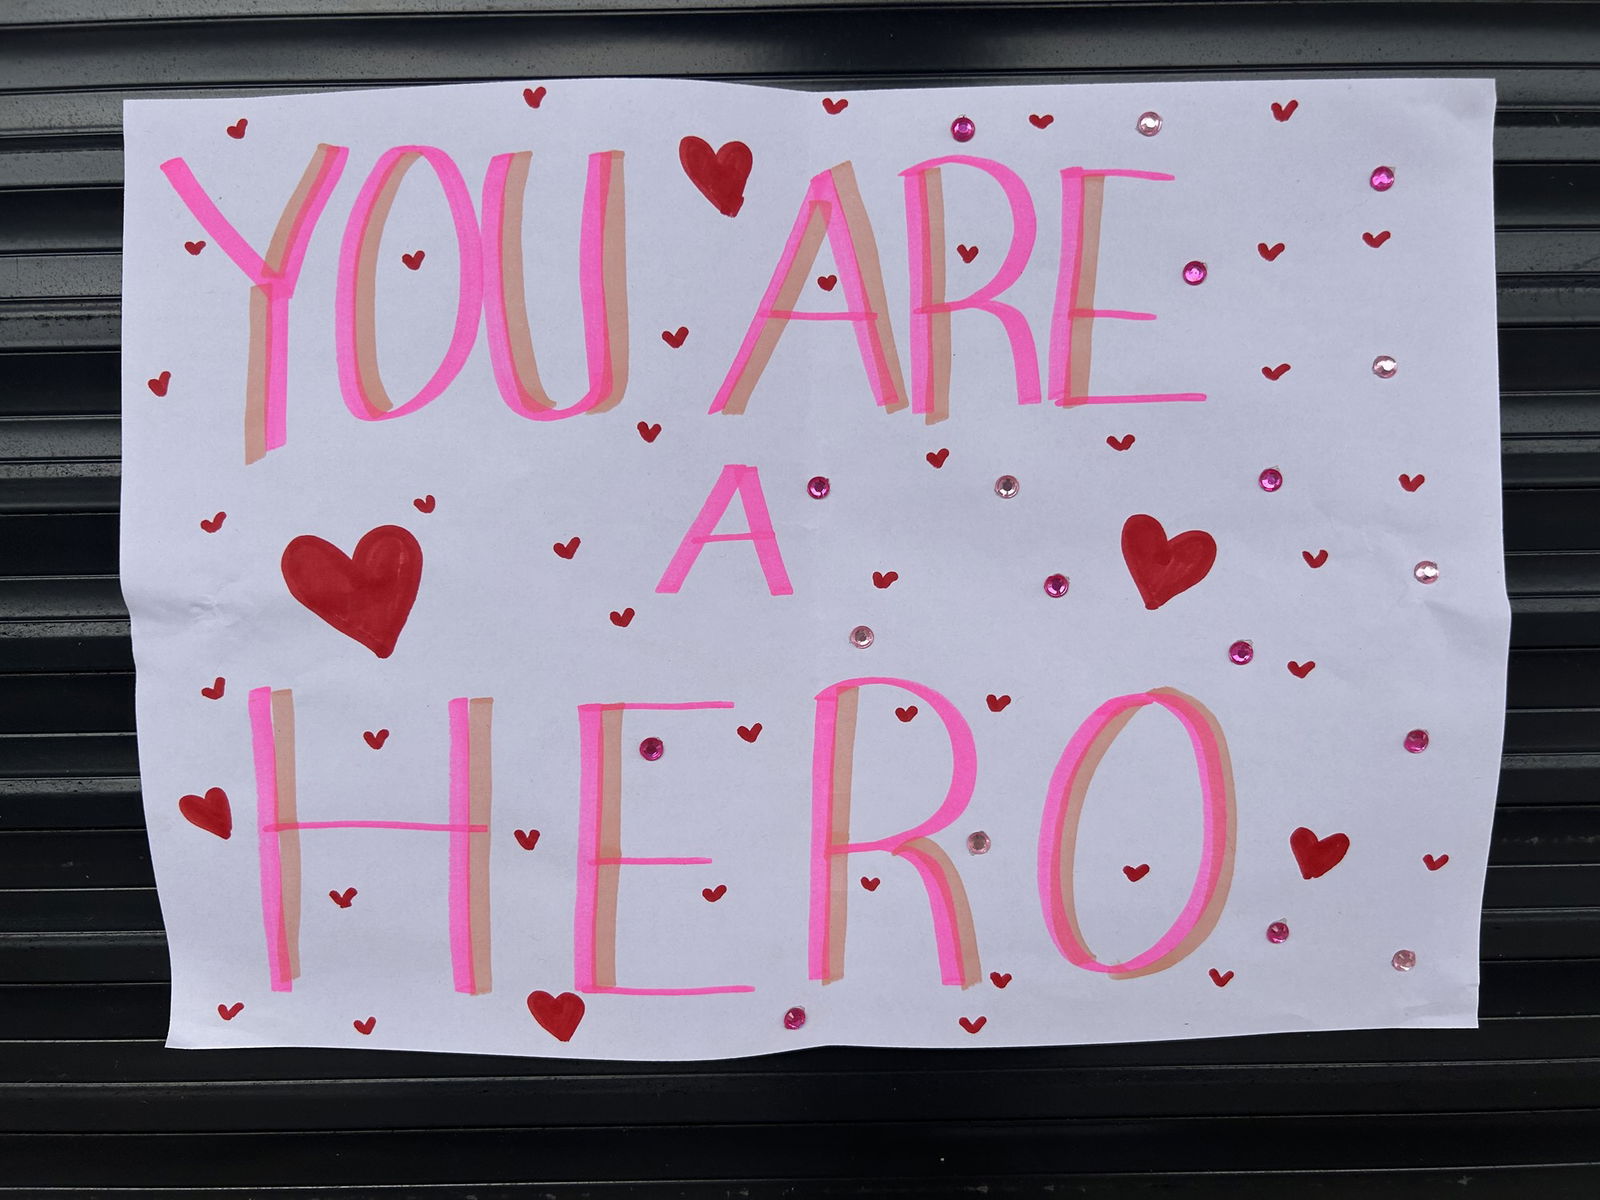 YOU ARE
A
HERO